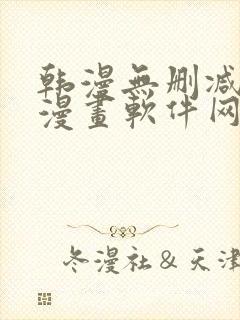 韩漫無删减
漫畫軟件网
冬漫社&天津